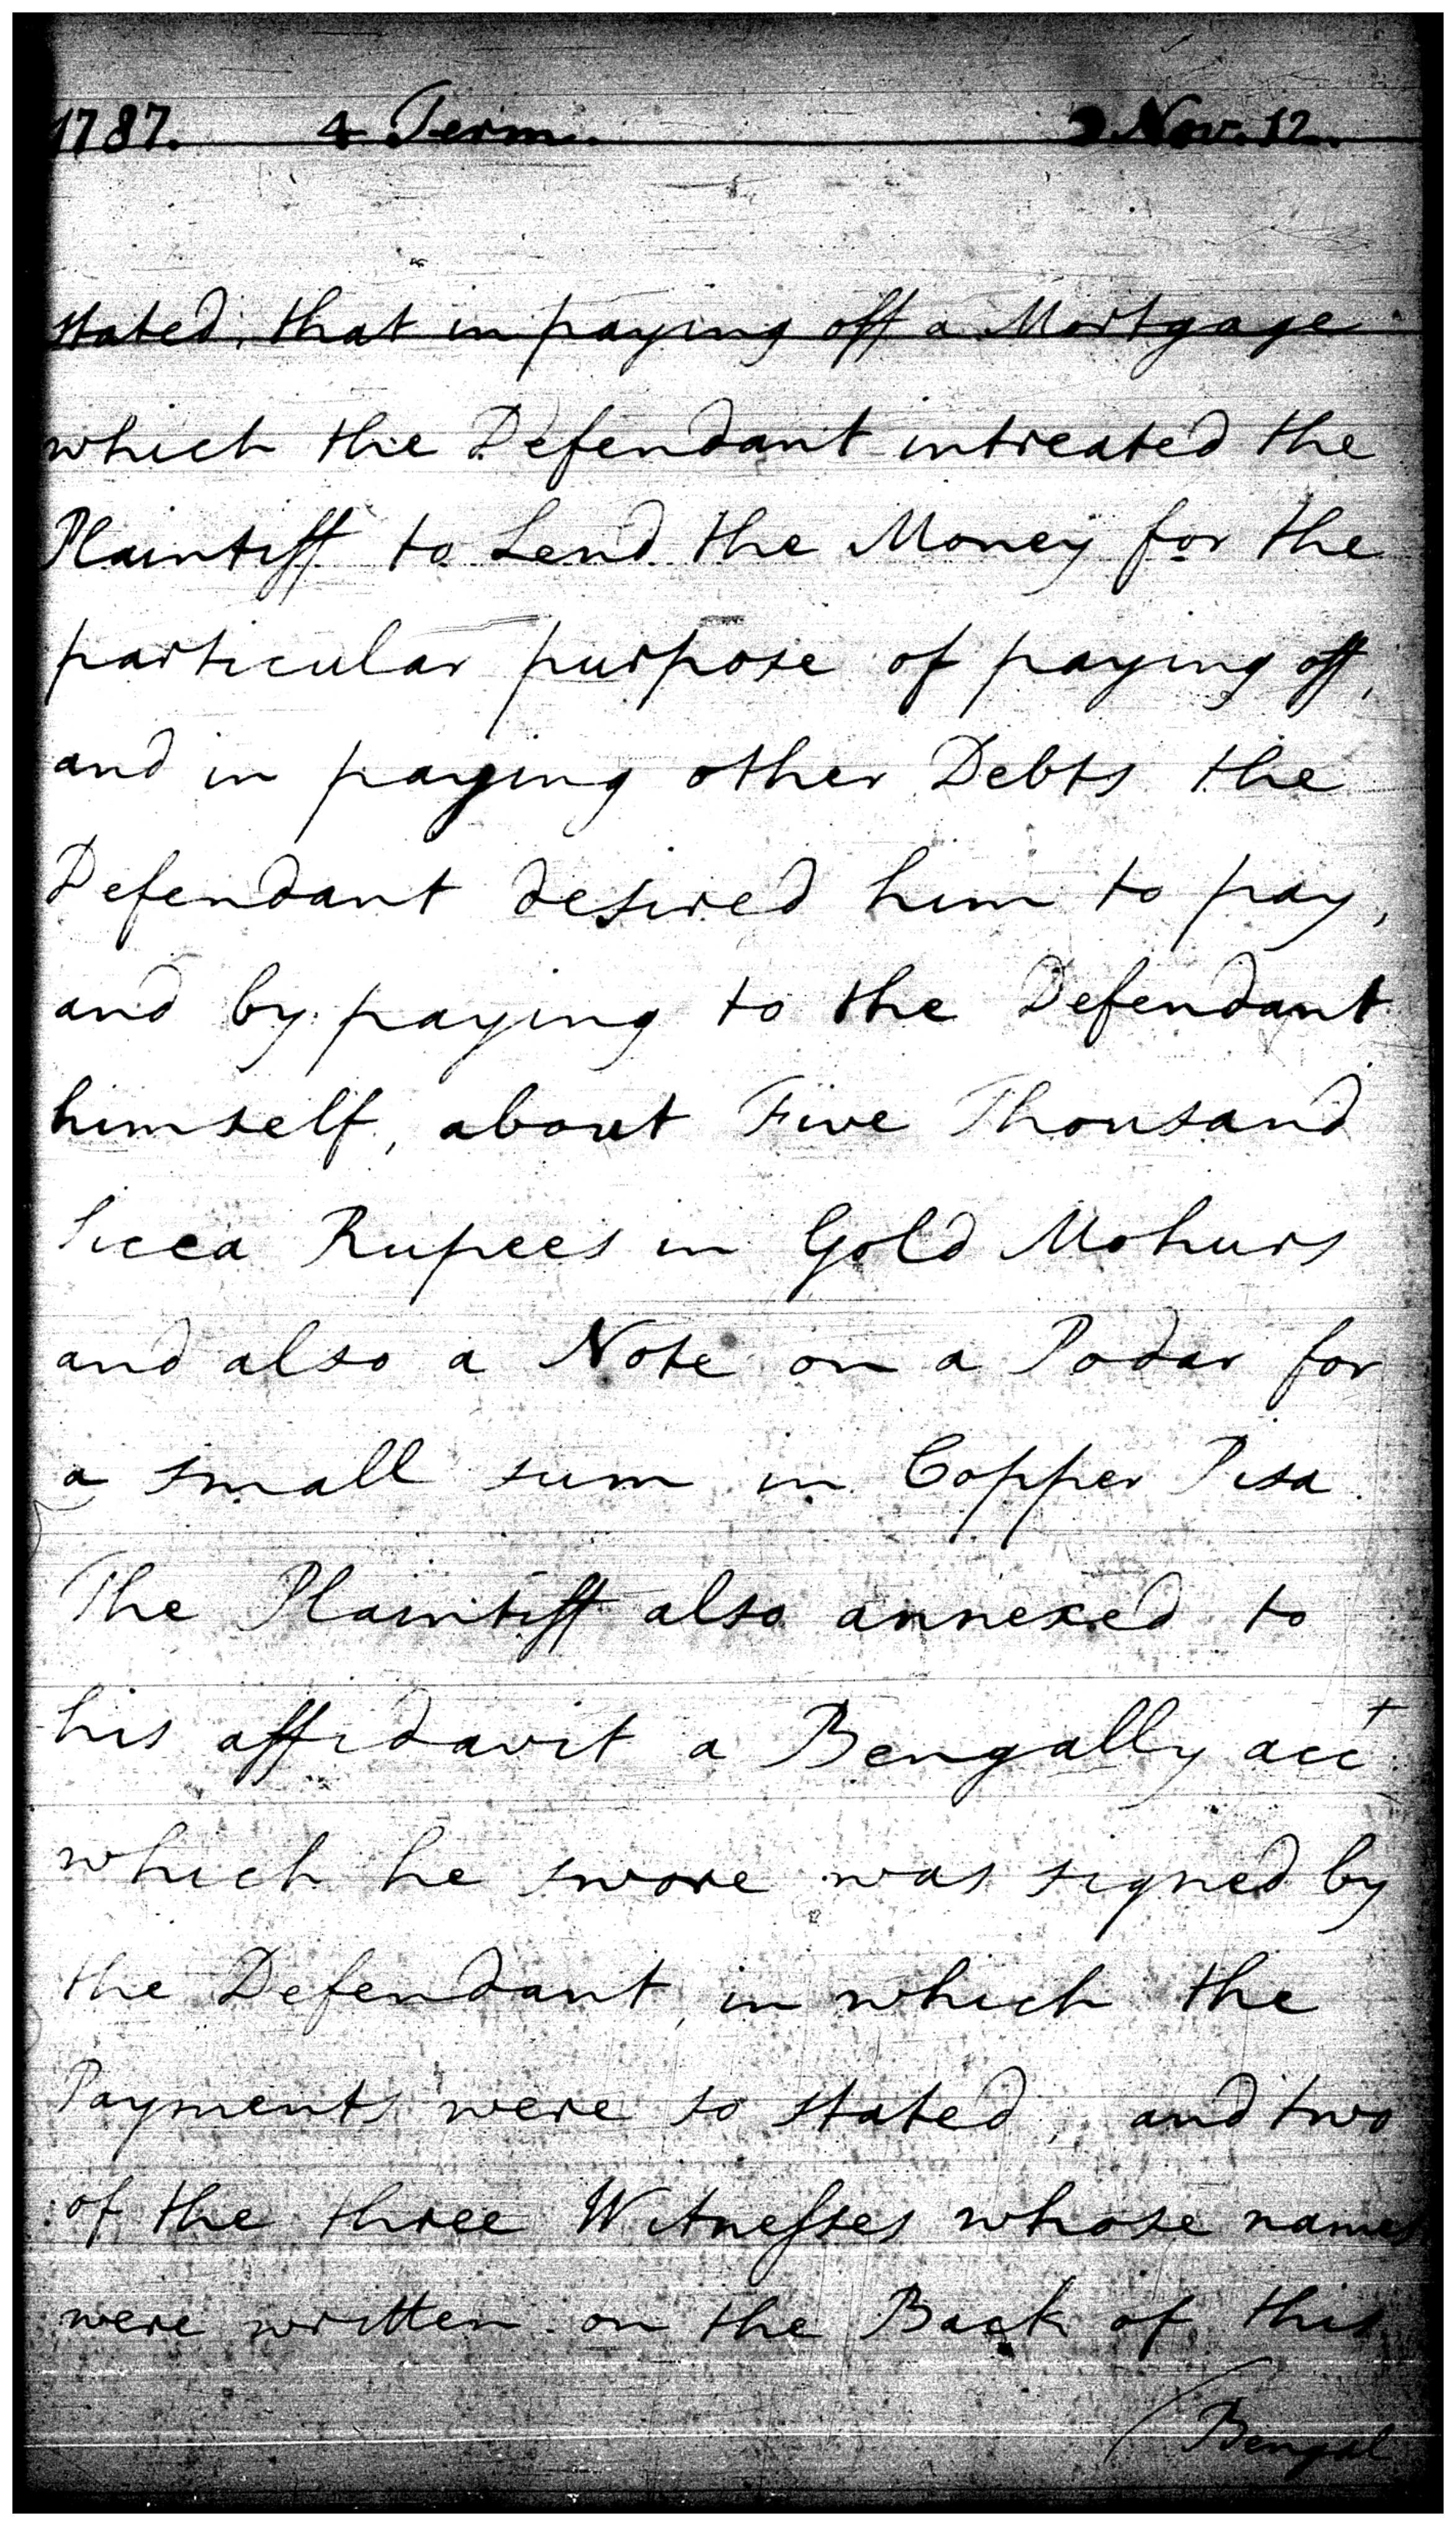 1787. 4 Term. Nov. 12.
stated, that in paying off a Mortgage
which the Defendant intreated the
Plaintiff to Lend the Money for the
particular purpose of paying off,
and in paying other Debts the
Defendant desired him to pay,
and by paying to the Defendant
himself, about Five Thousand
Sicca Rupees in Gold Mohurs
and also a Note on a Podar for
a small sum in Copper Pisa.
The Plaintiff also annexed to
his affidavit a Bengally acct.
which he swore was signed by
the Defendant, in which the
Payments were so stated, and two
of the three Witnesses whose names
were written on the Back of this
Bengal